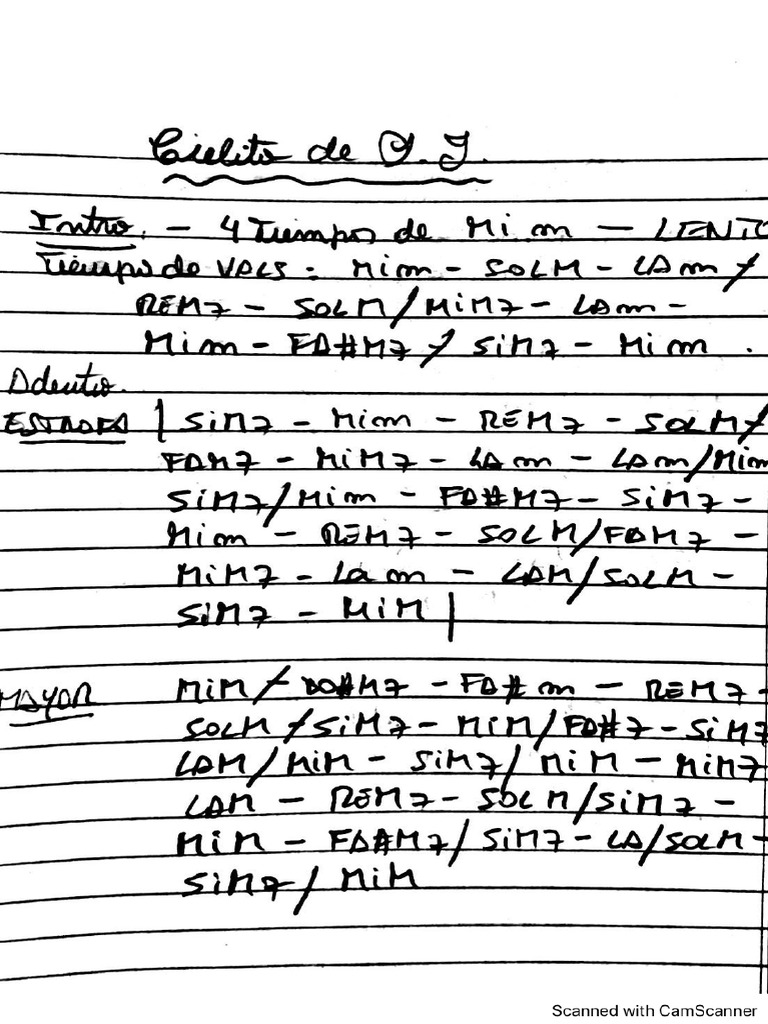 Cielito de O. J.
Intro. - 4 Tiempos de Mi m - LENTO
Tiempo de VALS: Mi m - SOL M - LA m /
REM7 - SOL M / MiM7 - LA m -
Mi m - FA#M7 / SiM7 - Mi m .
Adentro.
ESTROFA | SiM7 - Mi m - REM7 - SOL M /
FAM7 - MiM7 - LA m - LA m / Mi m
SiM7 / Mi m - FA#M7 - SiM7 -
Mi m - REM7 - SOL M / FAM7 -
MiM7 - La m - LAM / SOLM -
SiM7 - MiM |
MAYOR MiM / DO#M7 - FA# m - REM7 -
SOLM / SiM7 - MiM / FA#7 - SiM7
LAM / MiM - SiM7 / MiM - MiM7
LAM - REM7 - SOL M / SiM7 -
MiM - FA#M7 / SiM7 - LA / SOLM -
SiM7 / MiM
Scanned with CamScanner